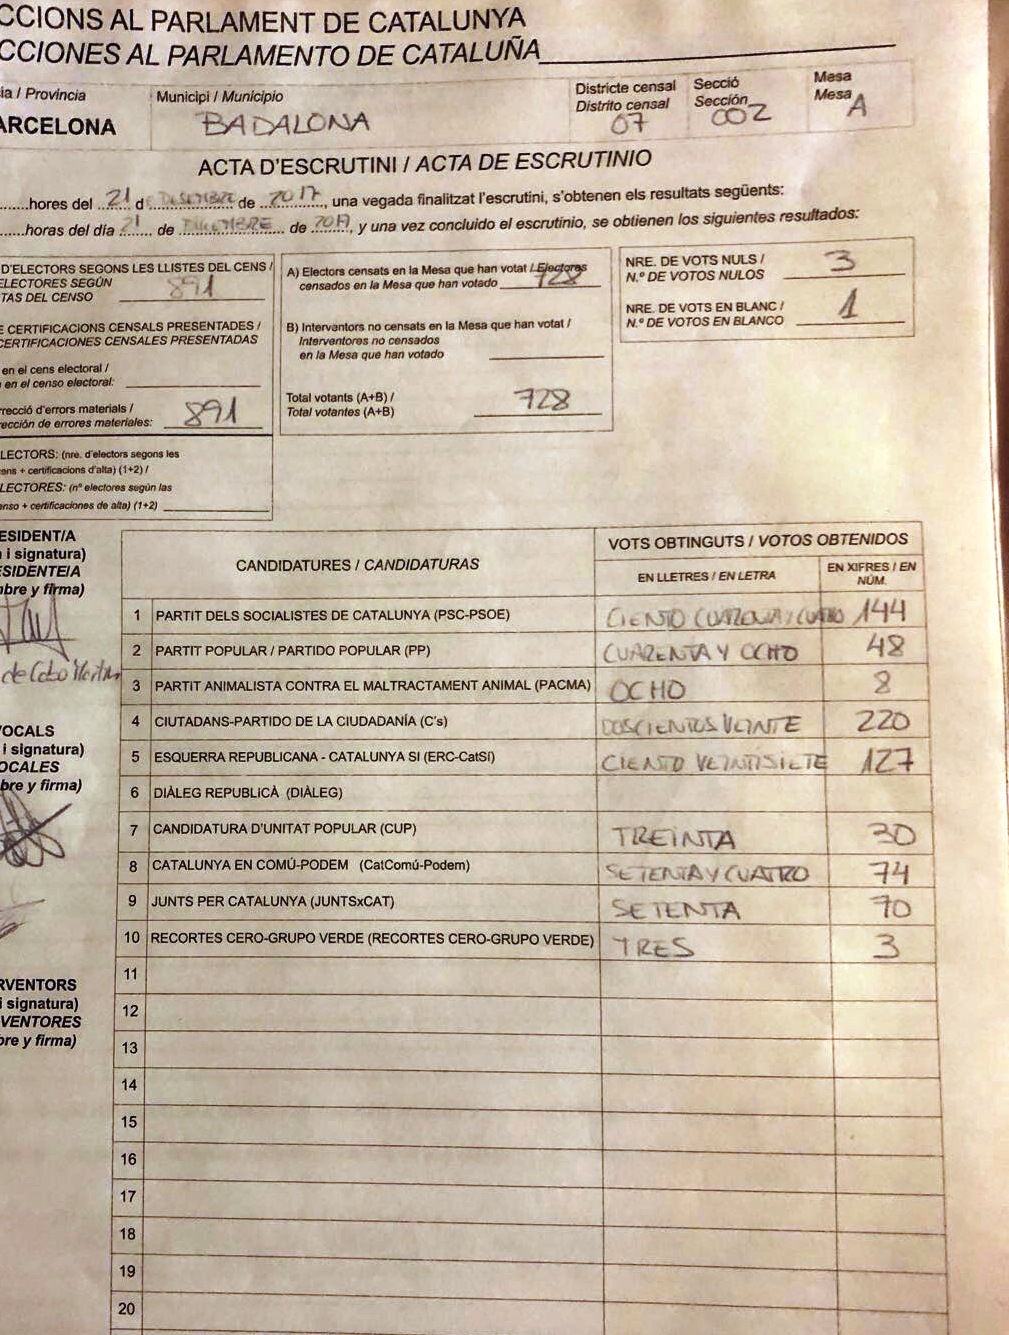 CCIONS AL PARLAMENT DE CATALUNYA
CCIONES AL PARLAMENTO DE CATALUÑA
ia / Provincia
ARCELONA
Municipi / Municipio
BADALONA
Districte censal
Distrito censal
07
Secció
Sección
002
Mesa
Mesa
A
ACTA D'ESCRUTINI / ACTA DE ESCRUTINIO
hores del 21 d DICIEMBRE de 2017, una vegada finalitzat l'escrutini, s'obtenen els resultats següents:
horas del día 21 de DICIEMBRE de 2017, y una vez concluido el escrutinio, se obtienen los siguientes resultados:
D'ELECTORS SEGONS LES LLISTES DEL CENS /
ELECTORES SEGÚN
TAS DEL CENSO 891
E CERTIFICACIONS CENSALS PRESENTADES /
CERTIFICACIONES CENSALES PRESENTADAS
en el cens electoral /
en el censo electoral:
rrecció d'errors materials /
rección de errores materiales: 891
LECTORS: (nre. d'electors segons les
ens + certificacions d'alta) (1+2) /
LECTORES: (nº electores según las
enso + certificaciones de alta) (1+2)
A) Electors censats en la Mesa que han votat / Electores
censados en la Mesa que han votado 728
B) Interventors no censats en la Mesa que han votat /
Interventores no censados
en la Mesa que han votado
Total votants (A+B) /
Total votantes (A+B) 728
NRE. DE VOTS NULS /
N.º DE VOTOS NULOS 3
NRE. DE VOTS EN BLANC /
N.º DE VOTOS EN BLANCO 1
ESIDENT/A
i signatura)
ESIDENTE/A
mbre y firma)
de Cobo
VOCALS
i signatura)
OCALES
bre y firma)
RVENTORS
i signatura)
VENTORES
bre y firma)
CANDIDATURES / CANDIDATURAS
VOTS OBTINGUTS / VOTOS OBTENIDOS
EN LLETRES / EN LETRA
EN XIFRES / EN
NÚM.
1 PARTIT DELS SOCIALISTES DE CATALUNYA (PSC-PSOE) CIENTO CUARENTA Y CUATRO 144
2 PARTIT POPULAR / PARTIDO POPULAR (PP) CUARENTA Y OCHO 48
3 PARTIT ANIMALISTA CONTRA EL MALTRACTAMENT ANIMAL (PACMA) OCHO 8
4 CIUTADANS-PARTIDO DE LA CIUDADANÍA (C's) DOSCIENTOS VEINTE 220
5 ESQUERRA REPUBLICANA - CATALUNYA SÍ (ERC-CatSí) CIENTO VEINTISIETE 127
6 DIÀLEG REPUBLICÀ (DIÀLEG)
7 CANDIDATURA D'UNITAT POPULAR (CUP) TREINTA 30
8 CATALUNYA EN COMÚ-PODEM (CatComú-Podem) SETENTA Y CUATRO 74
9 JUNTS PER CATALUNYA (JUNTSxCAT) SETENTA 70
10 RECORTES CERO-GRUPO VERDE (RECORTES CERO-GRUPO VERDE) TRES 3
11
12
13
14
15
16
17
18
19
20